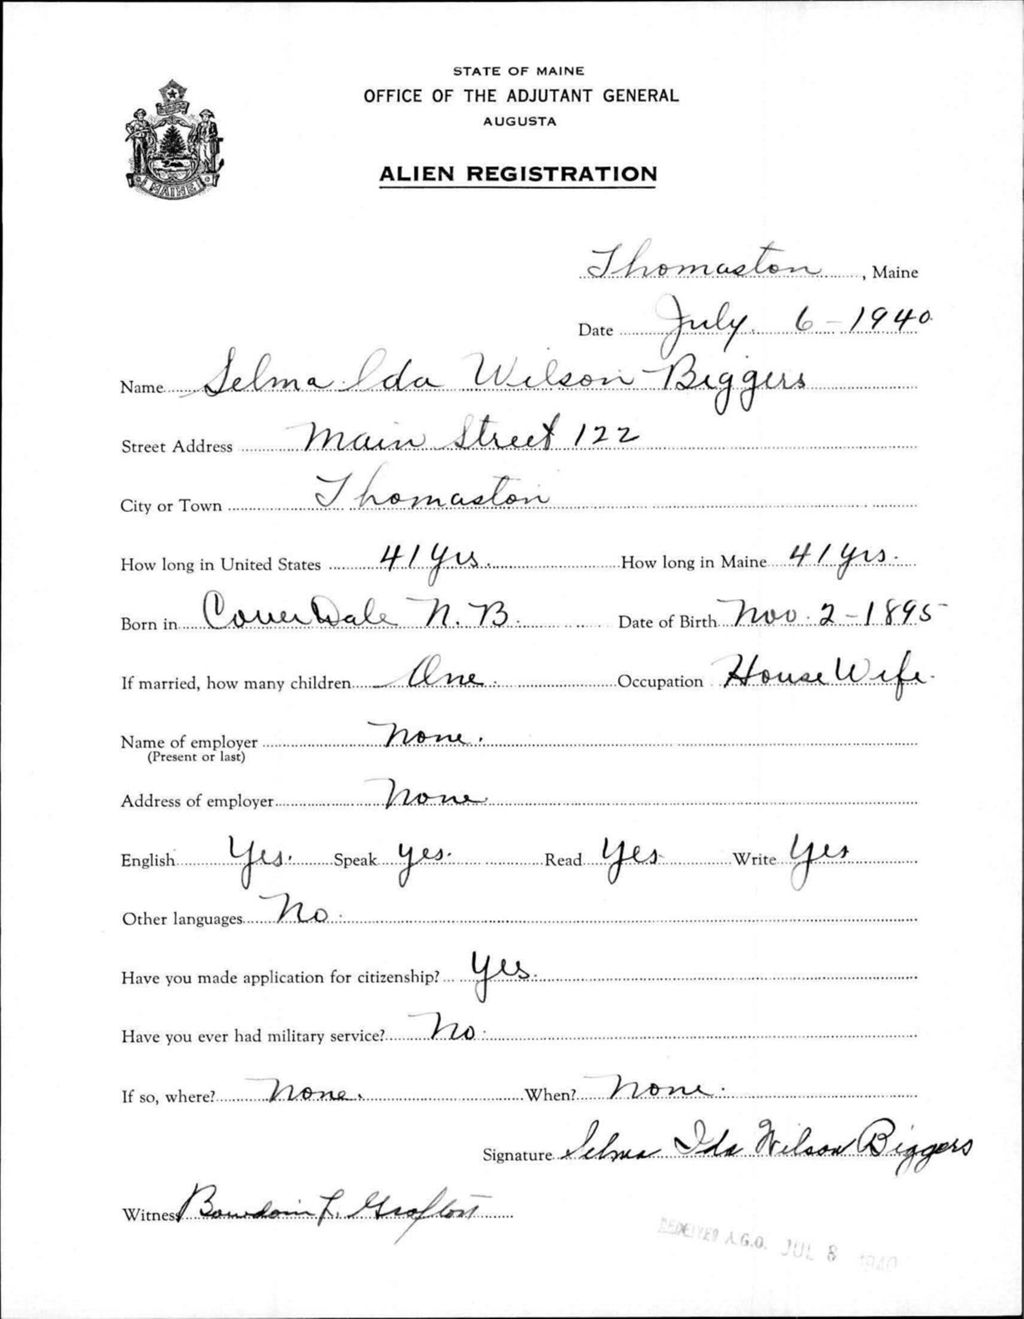 STATE OF MAINE
OFFICE OF THE ADJUTANT GENERAL
AUGUSTA
ALIEN REGISTRATION
MAINE
Thomaston, Maine
Date July. 6-1940
Name Selma Ida Wilson Biggers
Street Address Main Street 122
City or Town Thomaston
How long in United States 41 yrs. How long in Maine 41 yrs.
Born in CoverDale N.B. Date of Birth Nov. 2-1895
If married, how many children One. Occupation HouseWife.
Name of employer None.
(Present or last)
Address of employer None
English Yes. Speak yes. Read Yes Write Yes
Other languages No.
Have you made application for citizenship? Yes.
Have you ever had military service? No.
If so, where? None. When? None.
Signature Selma Ida Wilson Biggers
Witness Bowdoin L. Grafton
RECEIVED A.G.O. JUL 8 1940